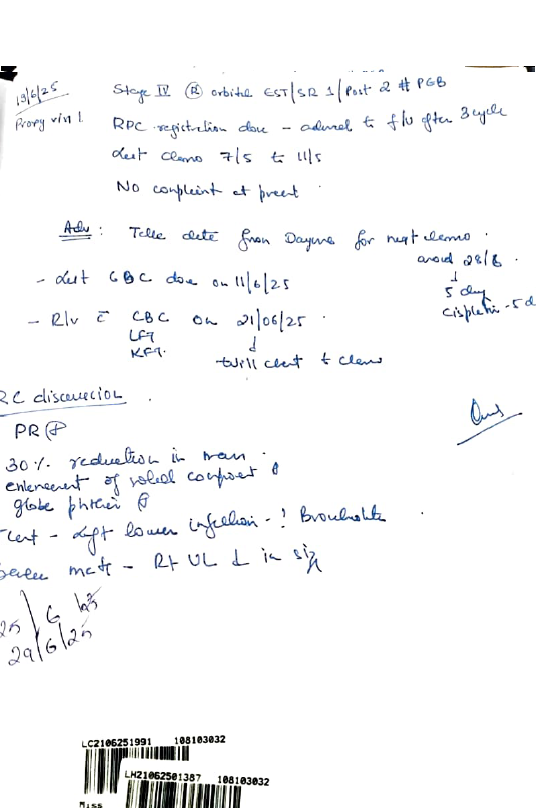 19/6/25
Stage IV (R) orbital EST/SR 1/Post 2 # PGB
Proxy visit 1.
RPC registration done - advised to f/u after 3 cycle
Last chemo 7/5 to 11/5
No complaint at present
Adv : Take date from Daycare for next chemo.
around 28/6.
↓
5 day
Cisplatin - 5 d
- Last CBC done on 11/6/25
- R/v c̄ CBC on 21/06/25.
LFT
KFT.
↓
Will chest to chemo
RC discussion
PR ⊕
30% reduction in
enhancement of solid component
globe phthisis ⊕
- Left lower infection - ? Bronchiolitis
mets - Rt UL ↓ in size
25/6/25
29/6/25
LC2106251991 108103032
LH21062501387 108103032
Miss